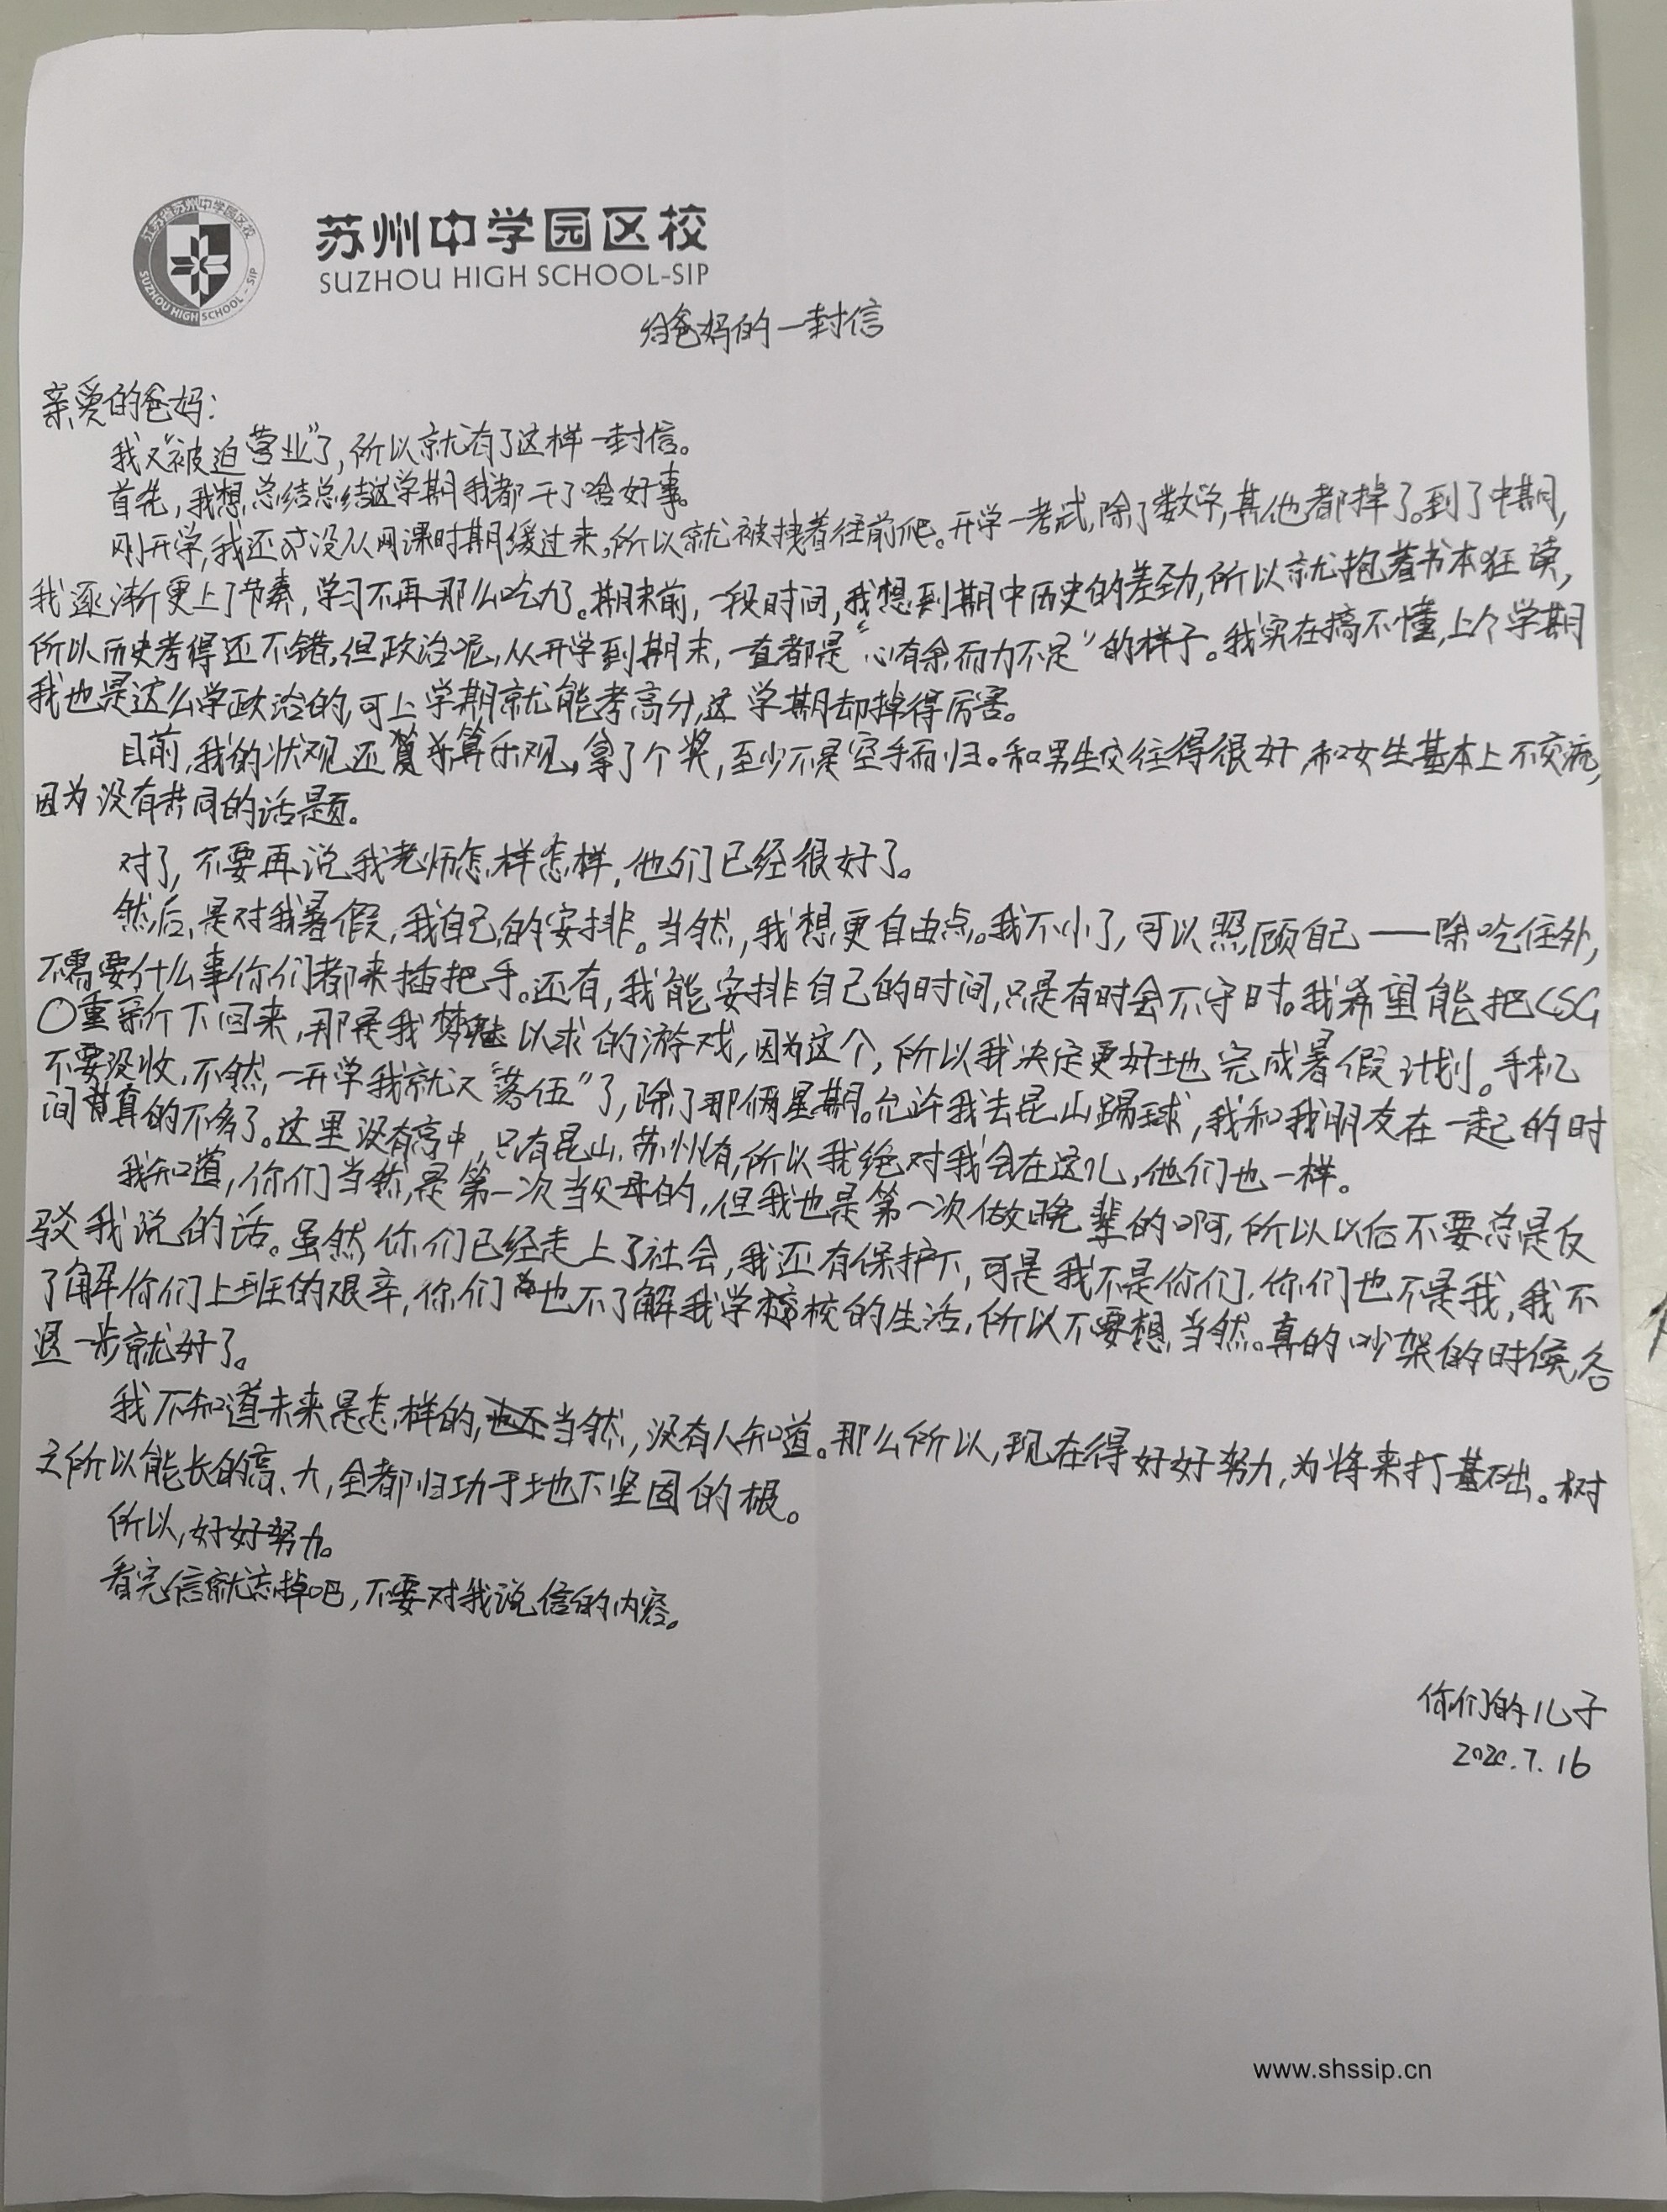 江苏省苏州中学园区校
SUZHOU HIGH SCHOOL - SIP
苏州中学园区校
SUZHOU HIGH SCHOOL-SIP
给爸妈的一封信
亲爱的爸妈：
我又“被迫营业”了，所以就有了这样一封信。
首先，我想总结总结这学期我都干了啥好事。
刚开学，我还没从网课时期缓过来，所以就被拽着往前爬。开学一考试，除了数学，其他都掉了。到了中期，
我逐渐更上了节奏，学习不再那么吃力。期末前，一段时间，我想到期中历史的差劲，所以就抱着书本狂读，
所以历史考得还不错，但政治呢，从开学到期末，一直都是“心有余而力不足”的样子。我实在搞不懂，上个学期
我也是这么学政治的，可上学期就能考高分，这学期却掉得厉害。
目前，我的状观还算乐观，拿了个奖，至少不是空手而归。和男生交往得很好，和女生基本上不交流，
因为没有共同的话题。
对了，不要再说我老师怎样怎样，他们已经很好了。
然后，是对我暑假，我自己的安排。当然，我想更自由点。我不小了，可以照顾自己——除吃住外，
不需要什么事你们都来插把手。还有，我能安排自己的时间，只是有时会不守时。我希望能把CSG
O重新下回来，那是我梦魅以求的游戏，因为这个，所以我决定更好地完成暑假计划。手机
不要没收，不然，一开学我就又“落伍”了，除了那俩星期。允许我去昆山踢球，我和我朋友在一起的时
间真的不多了。这里没有高中，只有昆山、苏州有，所以我绝对我会在这儿，他们也一样。
我知道，你们当然是第一次当父母的，但我也是第一次做晚辈的啊，所以以后不要总是反
驳我说的话。虽然你们已经走上了社会，我还有保护下，可是我不是你们，你们也不是我，我不
了解你们上班的艰辛，你们也不了解我学校的生活，所以不要想当然。真的吵架的时候，各
退一步就好了。
我不知道未来是怎样的，当然，没有人知道。那么所以，现在得好好努力，为将来打基础。树
之所以能长的高、大，全都归功于地下坚固的根。
所以，好好努力。
看完信就忘掉吧，不要对我说信的内容。
你们的儿子
2020.7.16
www.shssip.cn